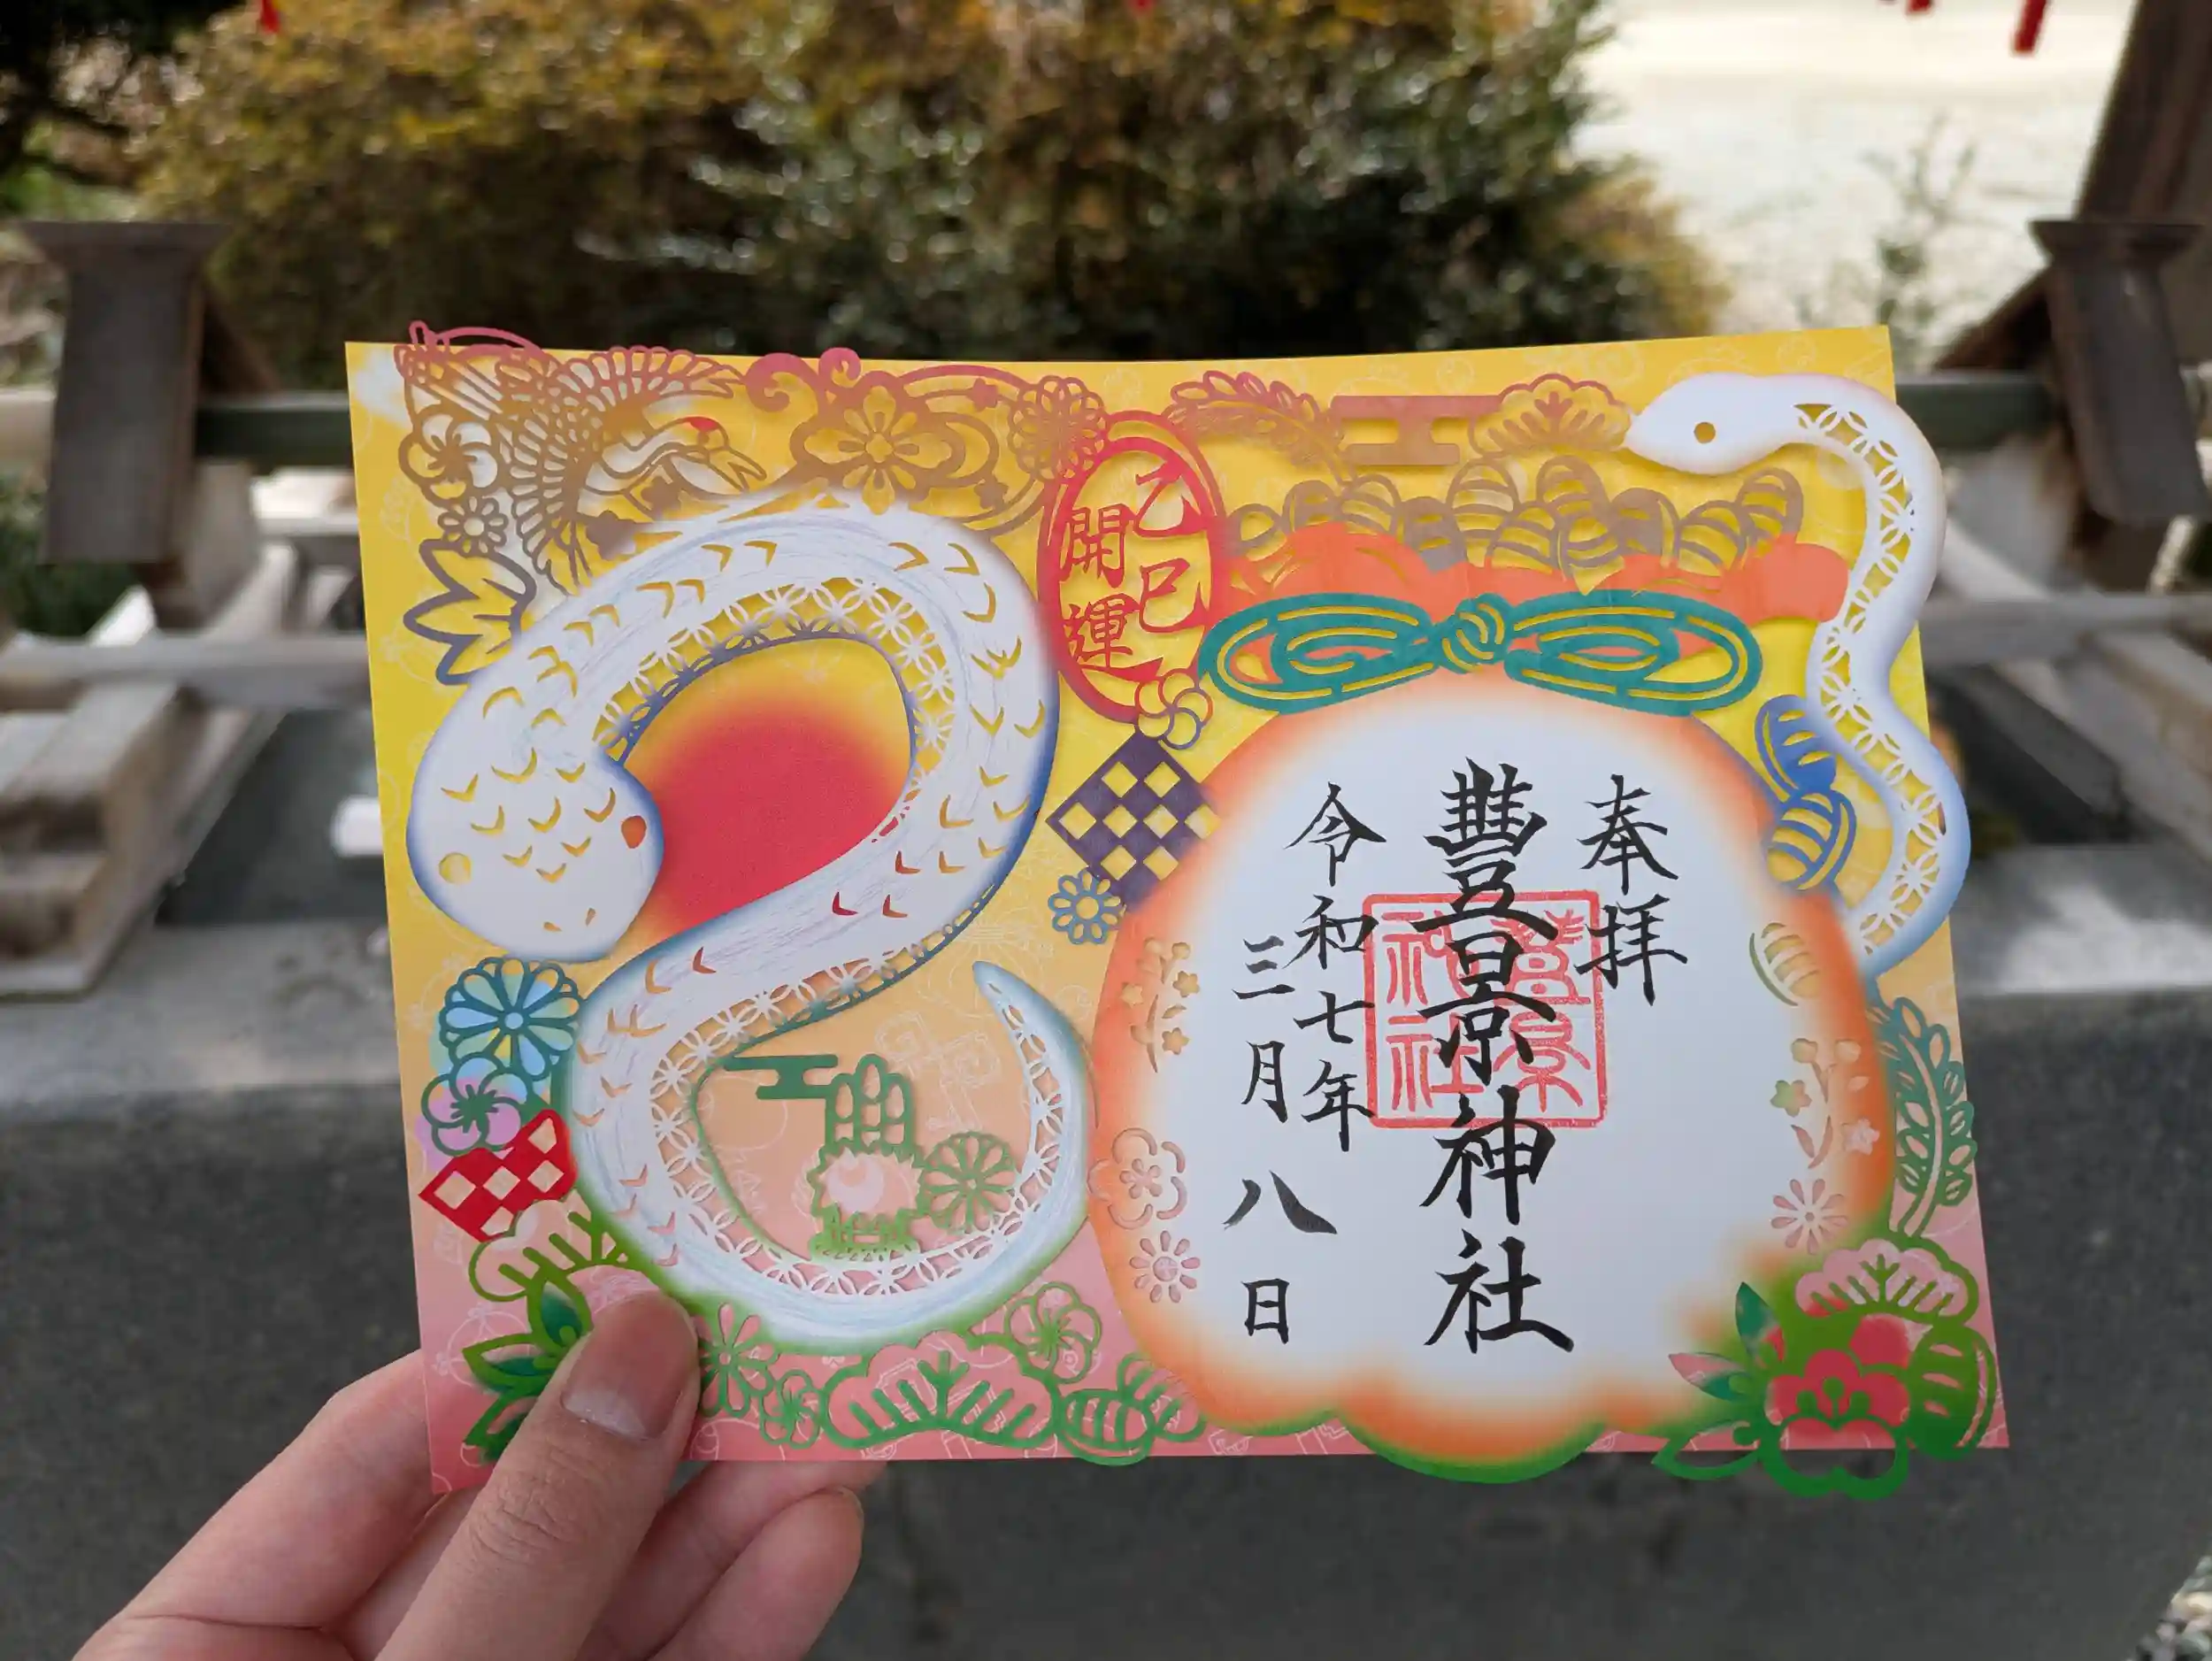 乙巳
開運
奉拝
豐景神社
令和七年
三月八日
豊景
神社